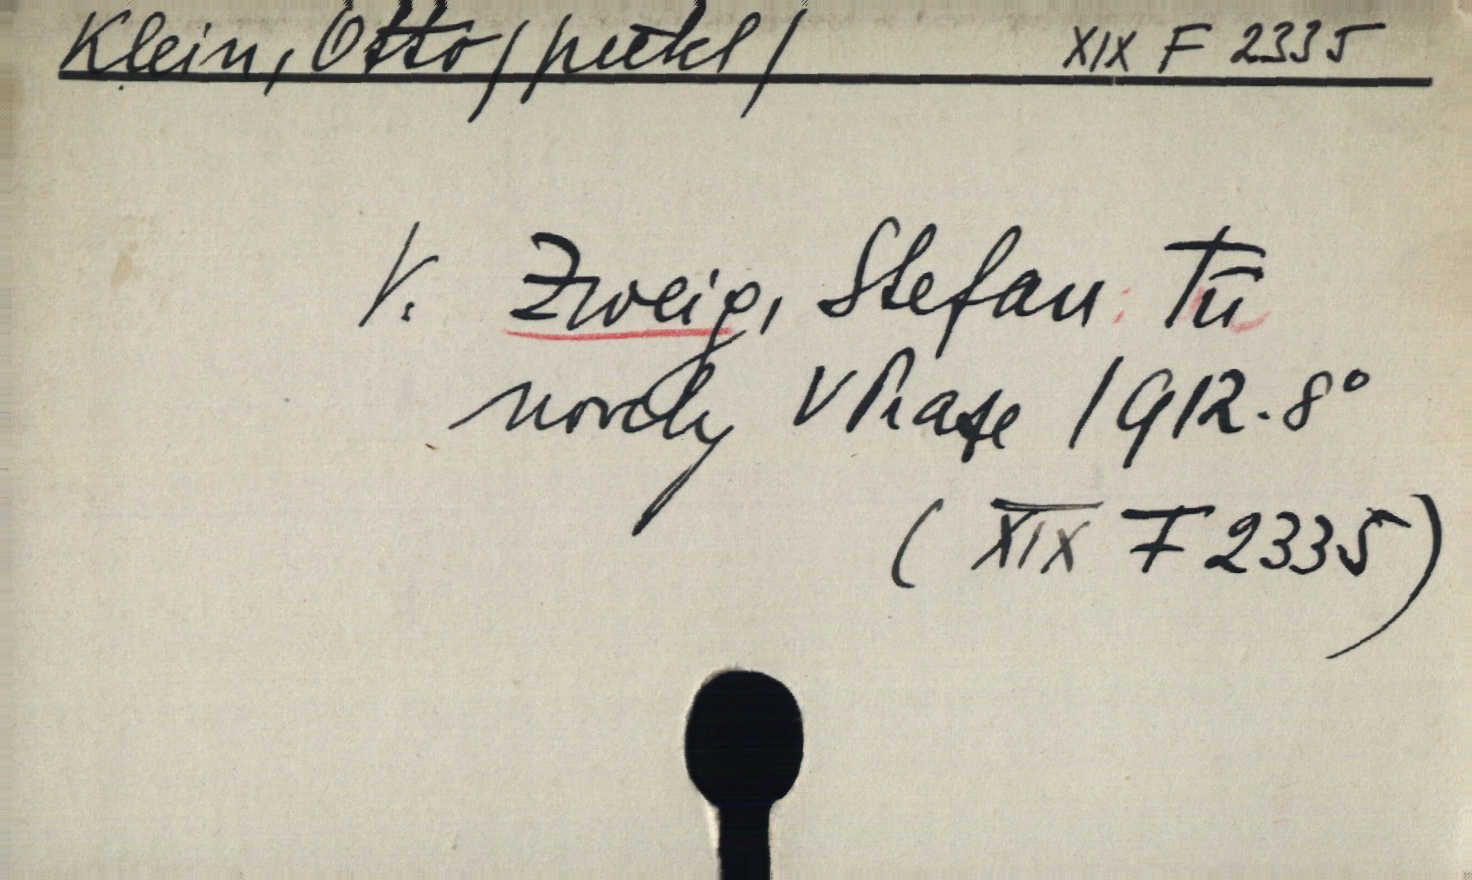 Klein, Otto /překl/ XIX F 2335
V. Zweig, Stefan: Tři
novely V Praze 1912. 8°
(XIX F 2335)